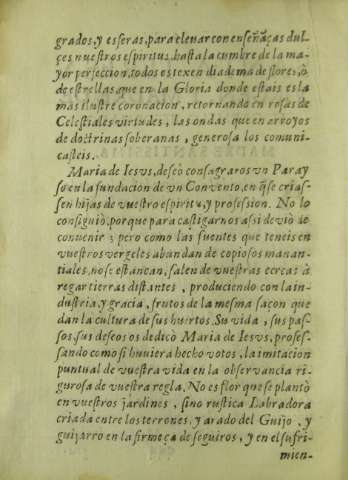 grados, y esferas, para elenar con enseñãças dul-
çes nuestros espiritus, hasta la cumbre de la ma-
yor perfeccion, todos es texen diadema de flores, ò
de estrellas, que en la Gloria donde estais es la
mas ilustre coronacion, retornando en rosas de
Celestiales virtudes, las ondas que en arroyos
de doctrinas soberanas, generosa los comuni-
casteis.
Maria de Iesvs, deseò consagraros vn Paray
so en la fundacion de vn Convento, en q̃ se crias-
sen hijas de vuestro espiritu, y profession. No lo
consiguiò, porque para castigarnos assi deviò de
convenir; pero como las fuentes que teneis en
vuestros vergeles abundan de copiosos manan-
tiales, no se estancan, salen de vuestras cercas à
regar tierras distantes, produciendo con la in-
dustria, y gracia, frutos de la mesma saçon que
dan la cultura de sus huertos. Su vida, sus pas-
sos, sus deseos os dedicò Maria de Iesvs, profes-
sando como si huviera hecho votos, la imitacion
puntual de vuestra vida en la observancia ri-
gurosa de vuestra regla. No es flor que se plantò
en vuestros jardines, sino rustica Labradora
criada entre los terrones, y arado del Guijo, y
guijarro en la firmeça de seguiros, y en el sufri-
mien-